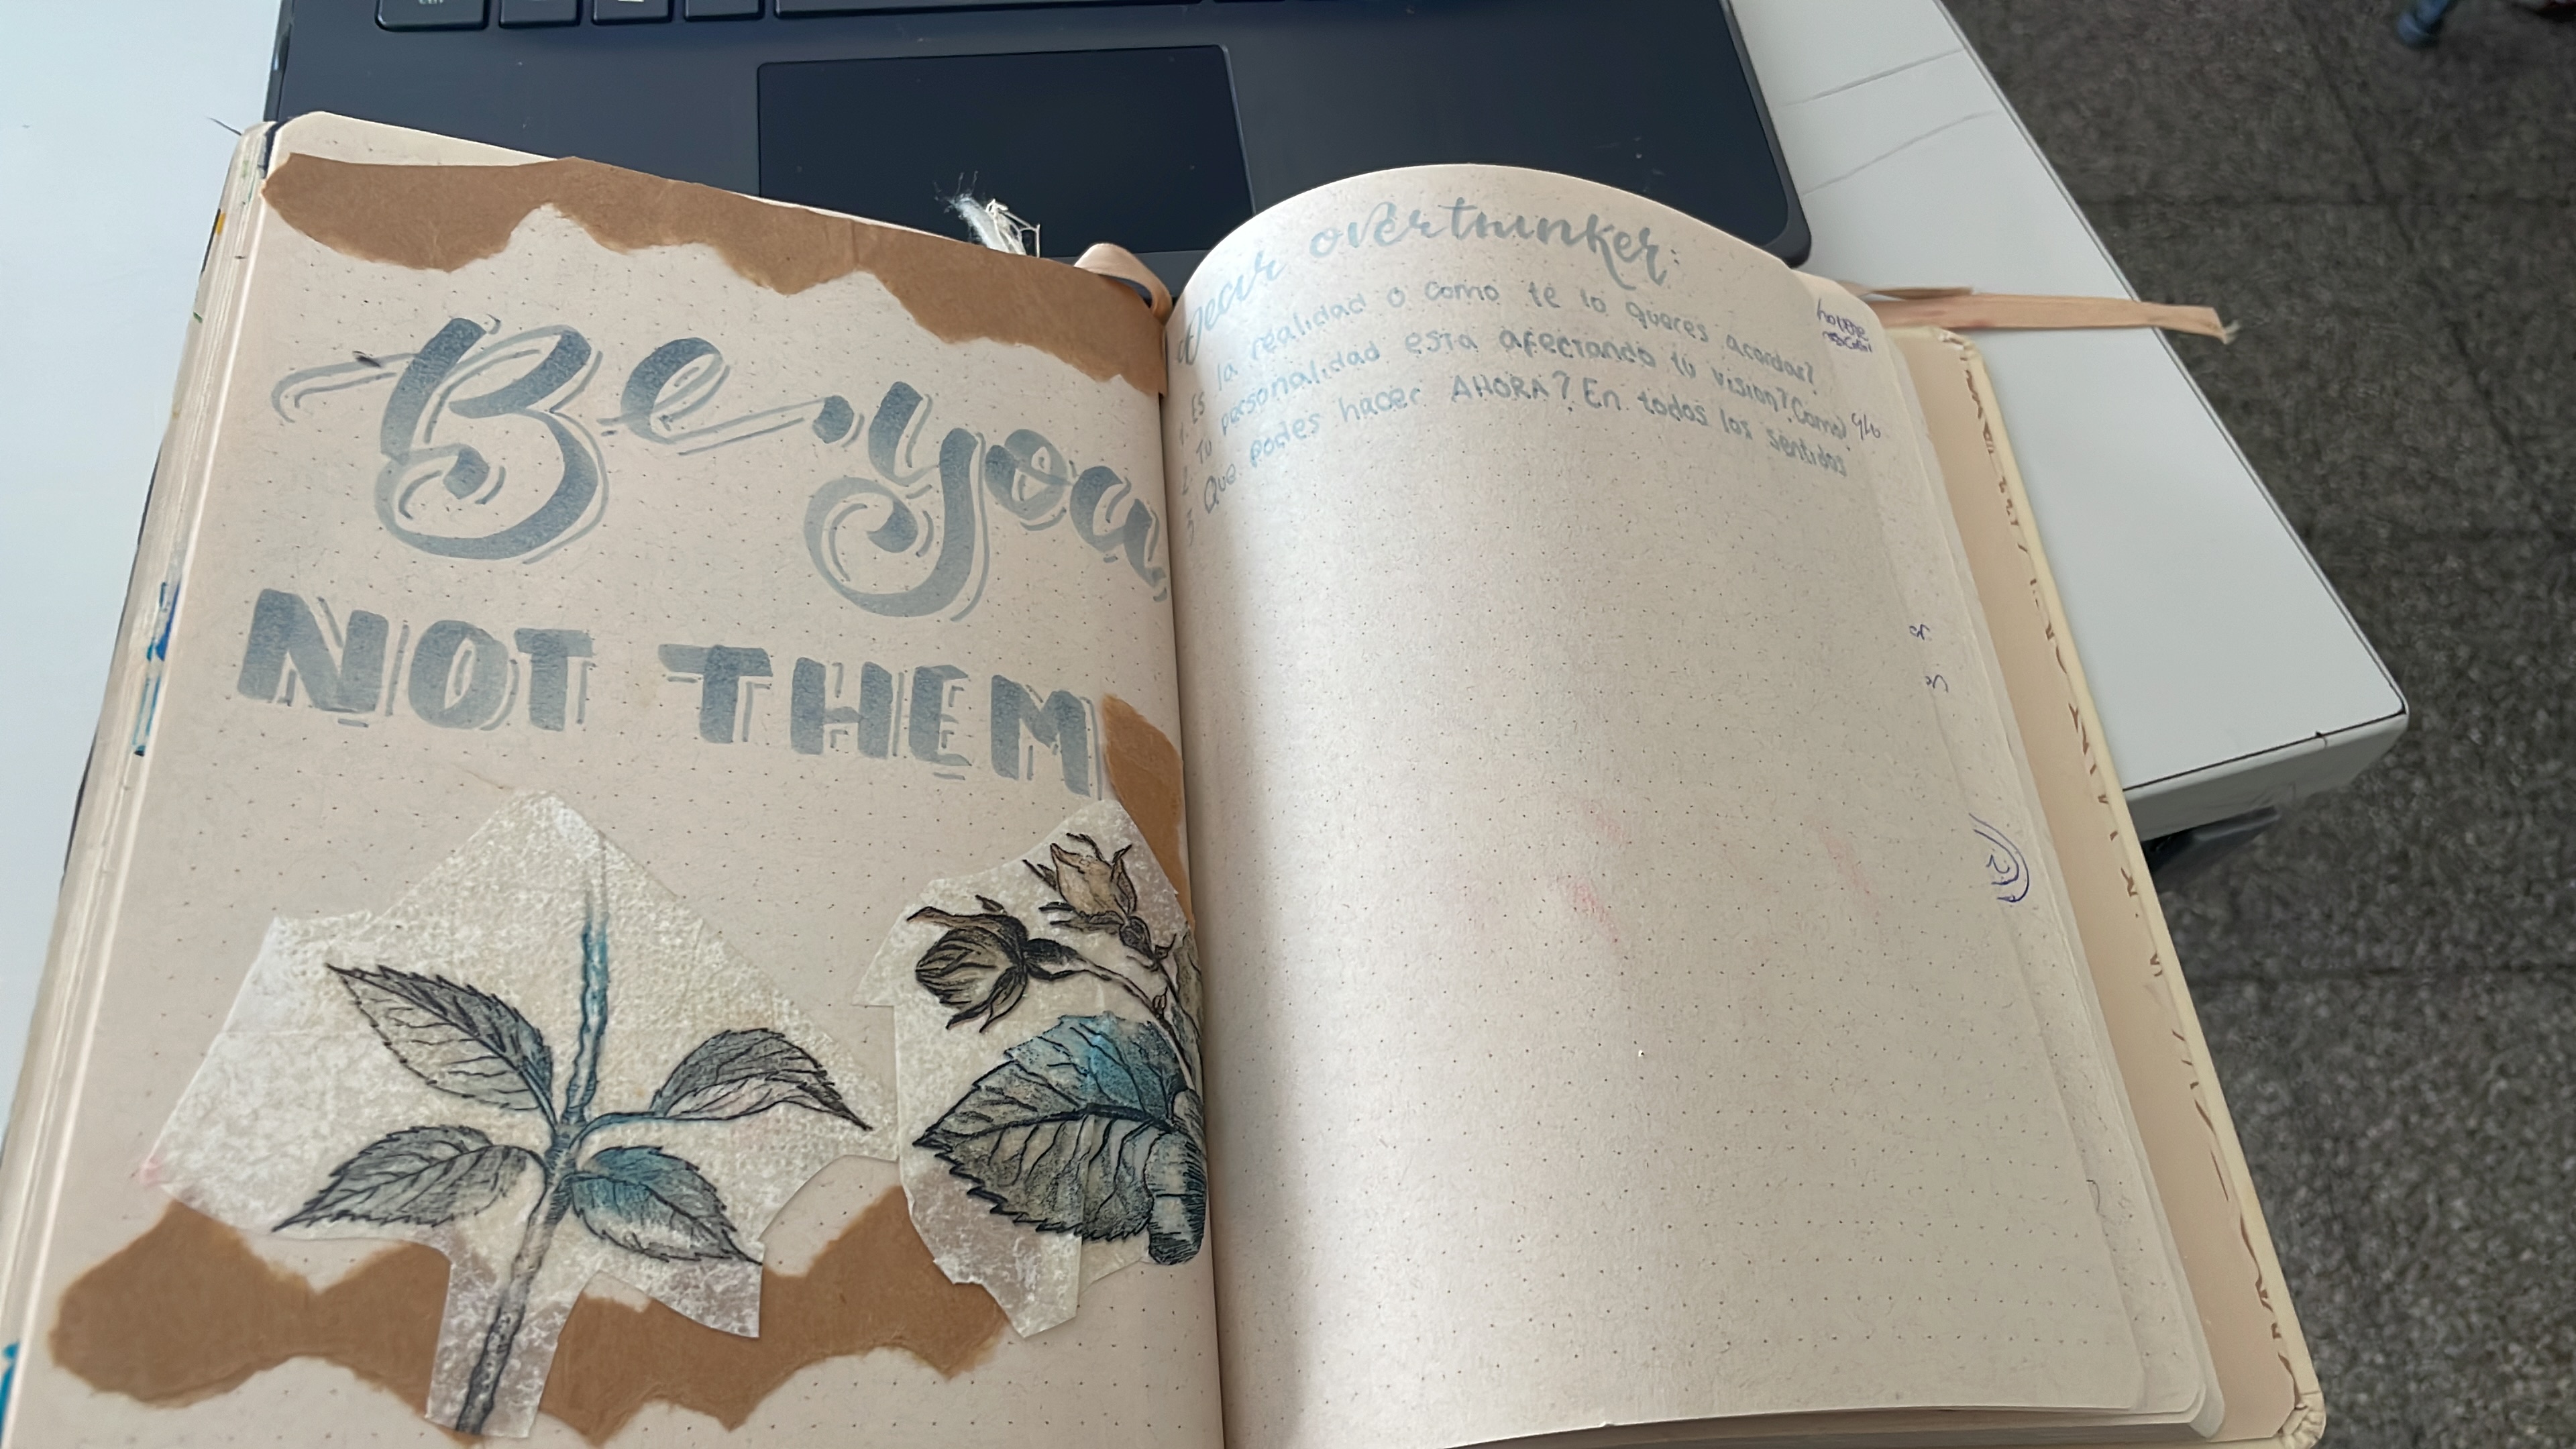 Be you,
NOT THEM
Dear overthinker:
1. Es la realidad o como te lo queres acordas?
2. Tu personalidad esta afectando tu vision? Como?
3 Que podes hacer AHORA? En todos los sentidos